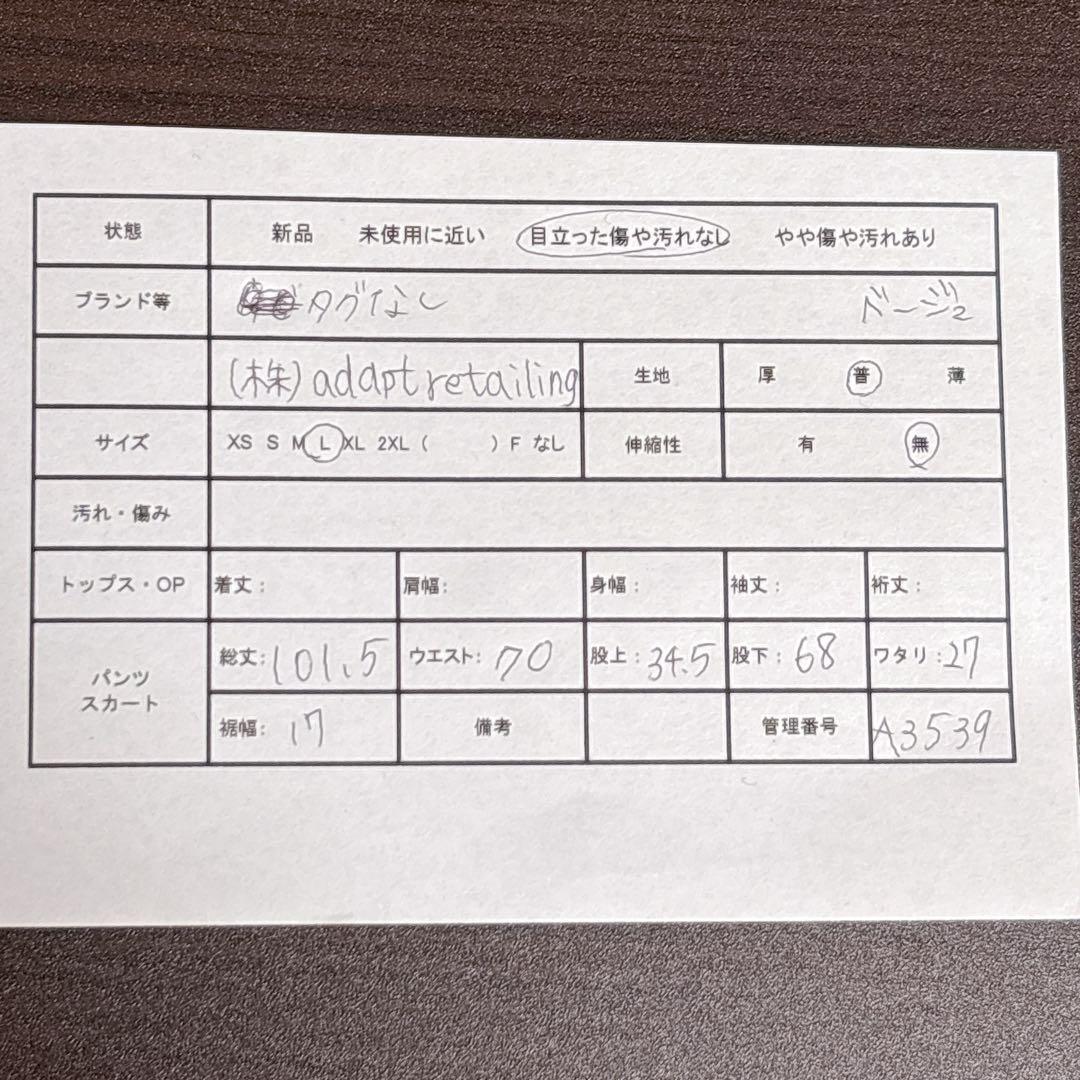 状態 新品 未使用に近い 目立った傷や汚れなし やや傷や汚れあり
ブランド等 タグなし ベージュ
(株)adaptretailing 生地 厚 普 薄
サイズ XS S M L XL 2XL ( ) F なし 伸縮性 有 無
汚れ・傷み
トップス・OP 着丈: 肩幅: 身幅: 袖丈: 裄丈:
パンツ スカート 総丈:101.5 ウエスト:70 股上:34.5 股下:68 ワタリ:27
裾幅: 17 備考 管理番号 A3539